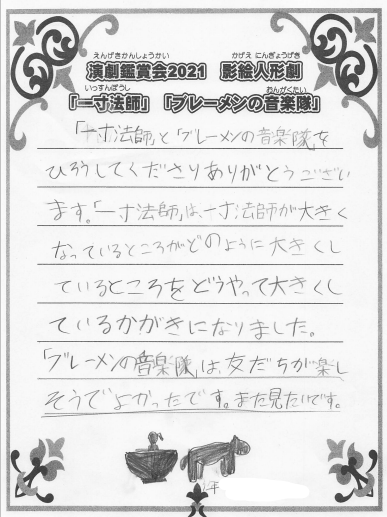 えんげきかんしょうかい　かげえ にんぎょうげき
演劇鑑賞会2021　影絵人形劇
いっすんぼうし　おんがくたい
「一寸法師」「ブレーメンの音楽隊」
「一寸法師」と「ブレーメンの音楽隊」を
ひろうしてくださりありがとうござい
ます。「一寸法師」は、一寸法師が大きく
なっているところがどのように大きくし
ているところをどうやって大きくし
ているかがきになりました。
「ブレーメンの音楽隊」は、友だちが楽し
そうでよかったです。また見たいです。
年